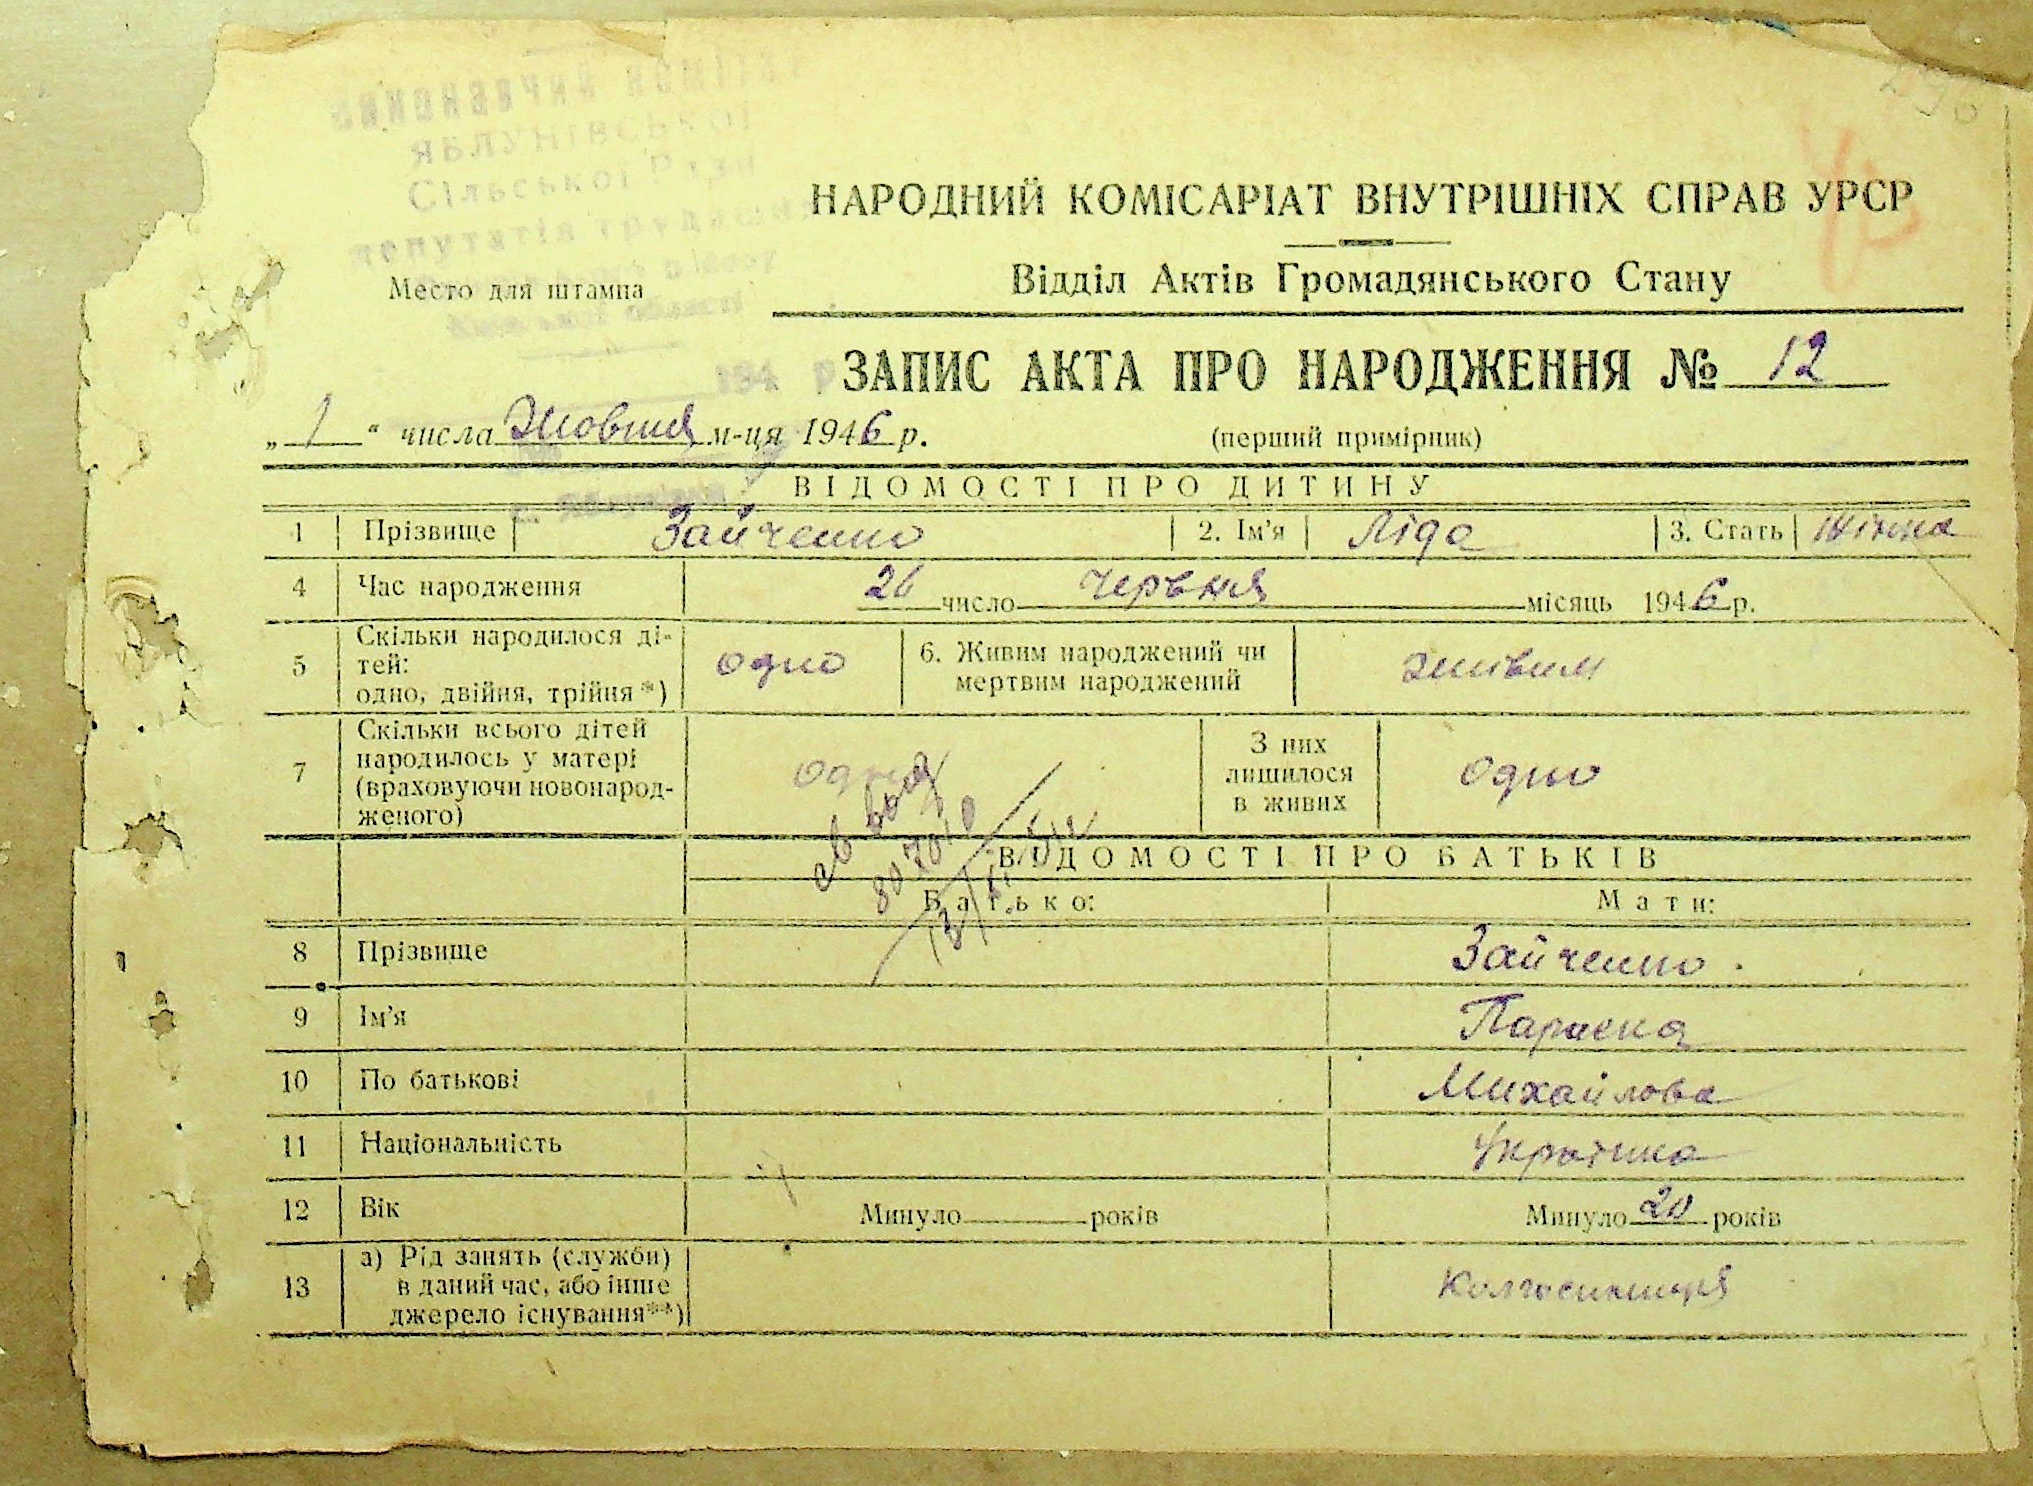 ЯБЛУНІВСЬКОЇ
Сільської Ради
депутатів трудящих
НАРОДНИЙ КОМІСАРІАТ ВНУТРІШНІХ СПРАВ УРСР
Відділ Актів Громадянського Стану
Место для штампа
ЗАПИС АКТА ПРО НАРОДЖЕННЯ № 12
„ 1 “ числа Жовтня м-ця 1946 р.
(перший примірник)
ВІДОМОСТІ ПРО ДИТИНУ
1 Прізвище Зайченко 2. Ім'я Ліда 3. Стать Жінка
4 Час народження 26 число червня місяць 1946 р.
5 Скільки народилося ді-
тей:
одно, двійня, трійня *) одно 6. Живим народжений чи
мертвим народжений живим
7 Скільки всього дітей
народилось у матері
(враховуючи новонарод-
женого) одно З них
лишилося
в живих одно
ВІДОМОСТІ ПРО БАТЬКІВ
Батько: Мати:
8 Прізвище Зайченко
9 Ім'я Параска
10 По батькові Михайлова
11 Національність Українка
12 Вік Минуло років Минуло 20 років
13 а) Рід занять (служби)
в даний час, або інше
джерело існування**) Колгоспниця